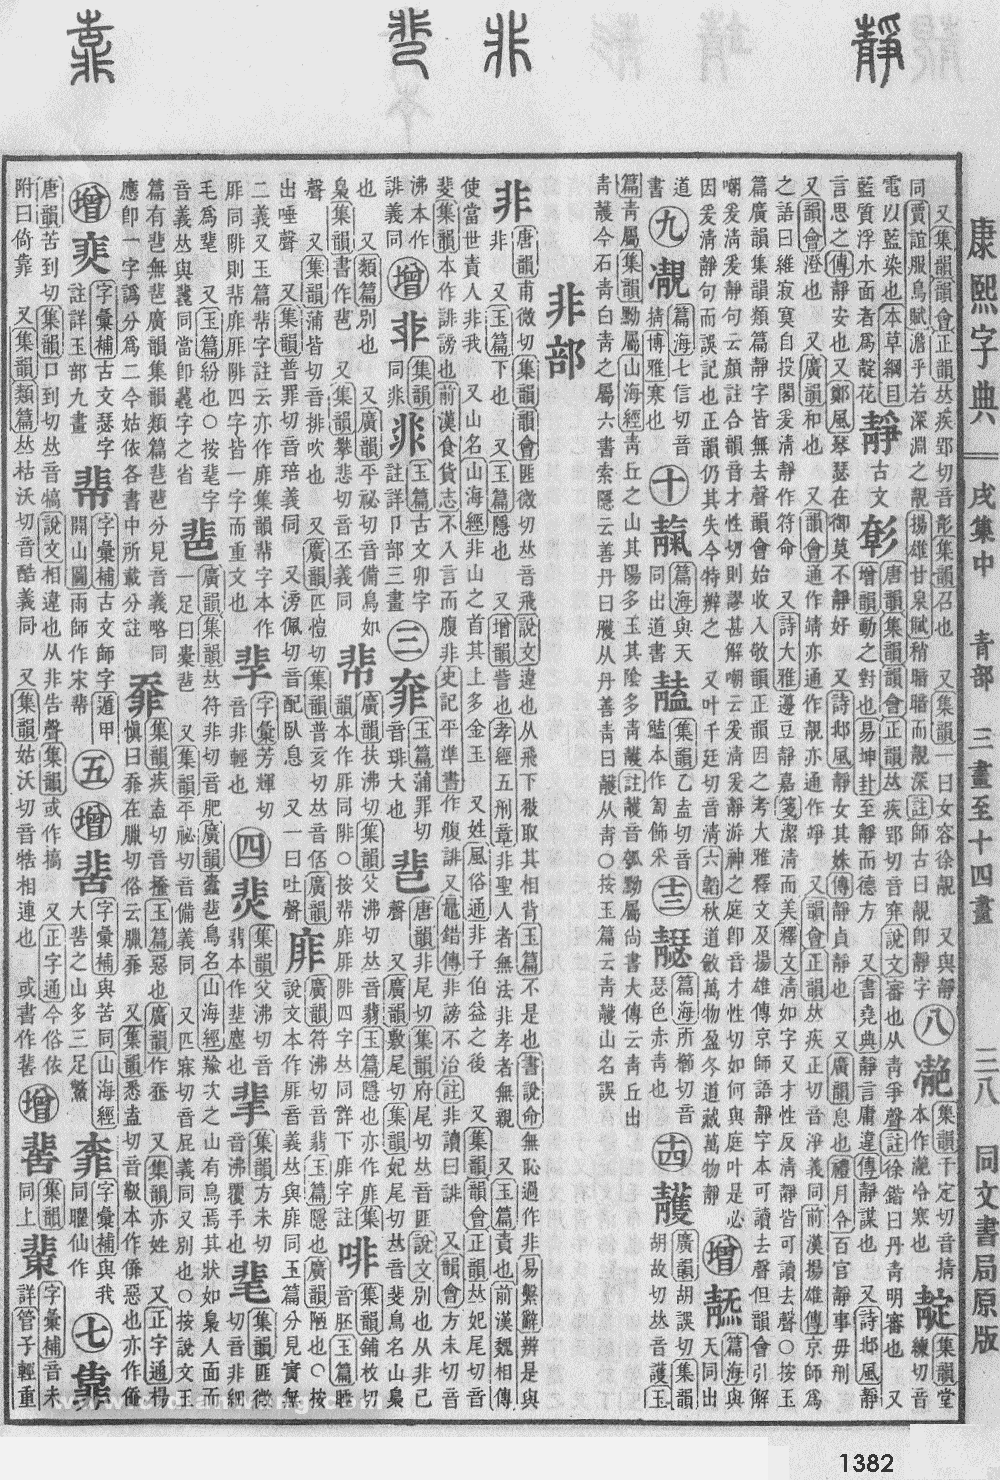 康熙字典 戌集中 青部 三畫至十四畫 三八 同文書局原版
又集韻韻會正韻𠀤疾郢切音彭集韻召也 又集韻一曰女容徐靚 又與靜
同賈誼服鳥賦澹乎若深淵之靚揚雄甘泉賦稍暗暗而靚深註師古曰靚卽靜字 八 集韻千定切音掅本作靘冷寒也 靛 集韻堂練切音
電以藍染也本草綱目藍質浮水面者為靛花 靜 古文彰 唐韻集韻韻會正韻𠀤疾郢切音穽說文審也从靑爭聲註徐鍇曰丹靑明審也 又增韻動之對也易坤卦至靜而德方 又書堯典靜言庸違傳靜謀也 又詩邶風靜
言思之傳靜安也又鄭風琴瑟在御莫不靜好 又詩邶風靜女其姝傳靜貞靜也 又廣韻息也禮月令百官靜事毋刑
又韻會澄也 又廣韻和也 又韻會通作靖亦通作靚亦通作竫 又韻會正韻𠀤疾正切音淨義同前漢揚雄傳京師爲
之語曰維寂寞自投閣爰清靜作符命 又詩大雅籩豆靜嘉箋潔清而美釋文清如字又才性反清靜皆可讀去聲○按玉
篇廣韻集韻類篇靜字皆無去聲韻會始收入敬韻正韻因之考大雅釋文及揚雄傳京師語靜字本可讀去聲但韻會引解
嘲爰清爰靜句云顏註合韻音才性切則謬甚解嘲云爰清爰靜游神之庭卽音才性切如何與庭叶是必
因爰清靜句而誤記也正韻仍其失今特辨之 又叶千廷切音清六韜秋道斂萬物盈冬道藏萬物靜 增 篇海與天同出
道書 九 篇海七信切音掅博雅寒也 十 篇海與天同出道書 集韻乙盍切音鰪本作匎飾采 十三 篇海所櫛切音瑟色赤靑也 十四 頀 廣韻胡誤切集韻胡故切𠀤音護玉
篇靑屬集韻黝屬山海經靑丘之山其陽多玉其陰多靑頀註頀音瓠黝屬尚書大傳云靑丘出
靑頀今石靑白靑之屬六書索隱云善丹曰雘从丹善靑曰頀从靑○按玉篇云靑頀山名誤
非部
非 唐韻甫微切集韻韻會匪微切𠀤音飛說文違也从飛下翄取其相背玉篇不是也書說命無恥過作非易繫辭辨是與
非 又玉篇下也 又玉篇隱也 又增韻訾也孝經五刑章非聖人者無法非孝者無親 又玉篇責也前漢魏相傳
使當世責人非我 又山名山海經非山之首其上多金玉 又姓風俗通非子伯益之後 又集韻韻會正韻𠀤妃尾切音
斐集韻本作誹謗也前漢食貨志不入言而腹非史記平準書作腹誹又鼂錯傳非謗不治註非讀曰誹 又韻會方未切音
沸本作誹義同 增 集韻同非 玉篇古文卯字註詳卩部三畫 三 奜 玉篇蒲罪切音琲大也 𩇫 唐韻非尾切集韻府尾切𠀤音匪說文別也从非己
聲 又廣韻敷尾切集韻妃尾切𠀤音斐鳥名山梟
也 又類篇別也 又廣韻平祕切音備鳥如梟集韻書作𩇫 又集韻攀悲切音丕義同 廣韻扶沸切集韻父沸切𠀤音翡玉篇隱也亦作厞集韻本作厞同陫○按厞陫四字𠀤同詳下厞字註 啡 集韻鋪枚切音胚玉篇唾
聲 又集韻蒲皆切音排吹也 又廣韻匹愷切集韻普亥切𠀤音俖廣韻
出唾聲 又集韻普罪切音琣義同 又湃佩切音配臥息 又一曰吐聲 厞 廣韻符沸切音翡玉篇隱也廣韻陋也○按
說文本作厞音義𠀤與厞同玉篇分見實無
二義又玉篇字註云亦作厞集韻字本作
厞同陫則厞陫四字皆一字而重文也 字彙芳輝切音非輕也 四 集韻父沸切音翡本作塵也 集韻方未切音沸覆手也 集韻匪微切音非細
毛爲 又玉篇紛也○按字音義𠀤與同當卽字之省 廣韻集韻𠀤符非切音肥廣韻鳥名山海經羭次之山有鳥焉其狀如梟人面而
一足曰橐 又集韻平祕切音備義同 又匹寐切音屁義同又別也○按說文玉
篇有無廣韻集韻類篇分見音義略同
應卽一字譌分爲二今姑依各書中所載分註 集韻疾盍切音 玉篇惡也廣韻作 又集韻亦姓 又正字通楊慎曰在臘切俗云臘 又集韻悉盍切音本作惡也亦作
增 字彙補古文瑟字註詳玉部九畫 字彙補古文師字遁甲開山圖雨師作宋 五 增 字彙補與苦同山海經大之山多三足鱉 字彙補與我同曜仙作 七 靠
唐韻苦到切集韻口到切𠀤音犒說文相違也从非告聲集韻或作搞 又正字通今俗依附曰倚靠 又集韻類篇𠀤枯沃切音酷義同 又集韻姑沃切音牿相連也 或書作 增 集韻同上 字彙補音未詳管子輕重
1382